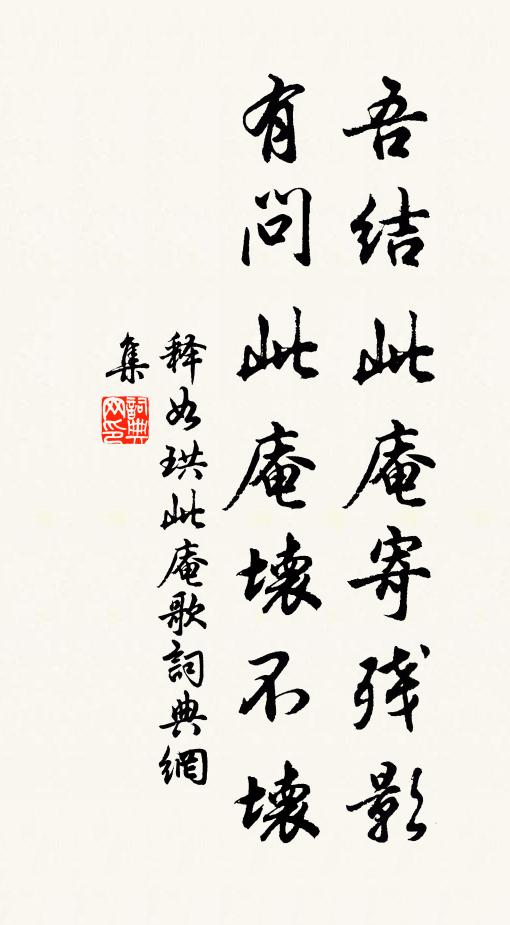 吾结此庵寄残影
有问此庵壊不壊
释如珙此庵歌詞典網
集
詞典
网印